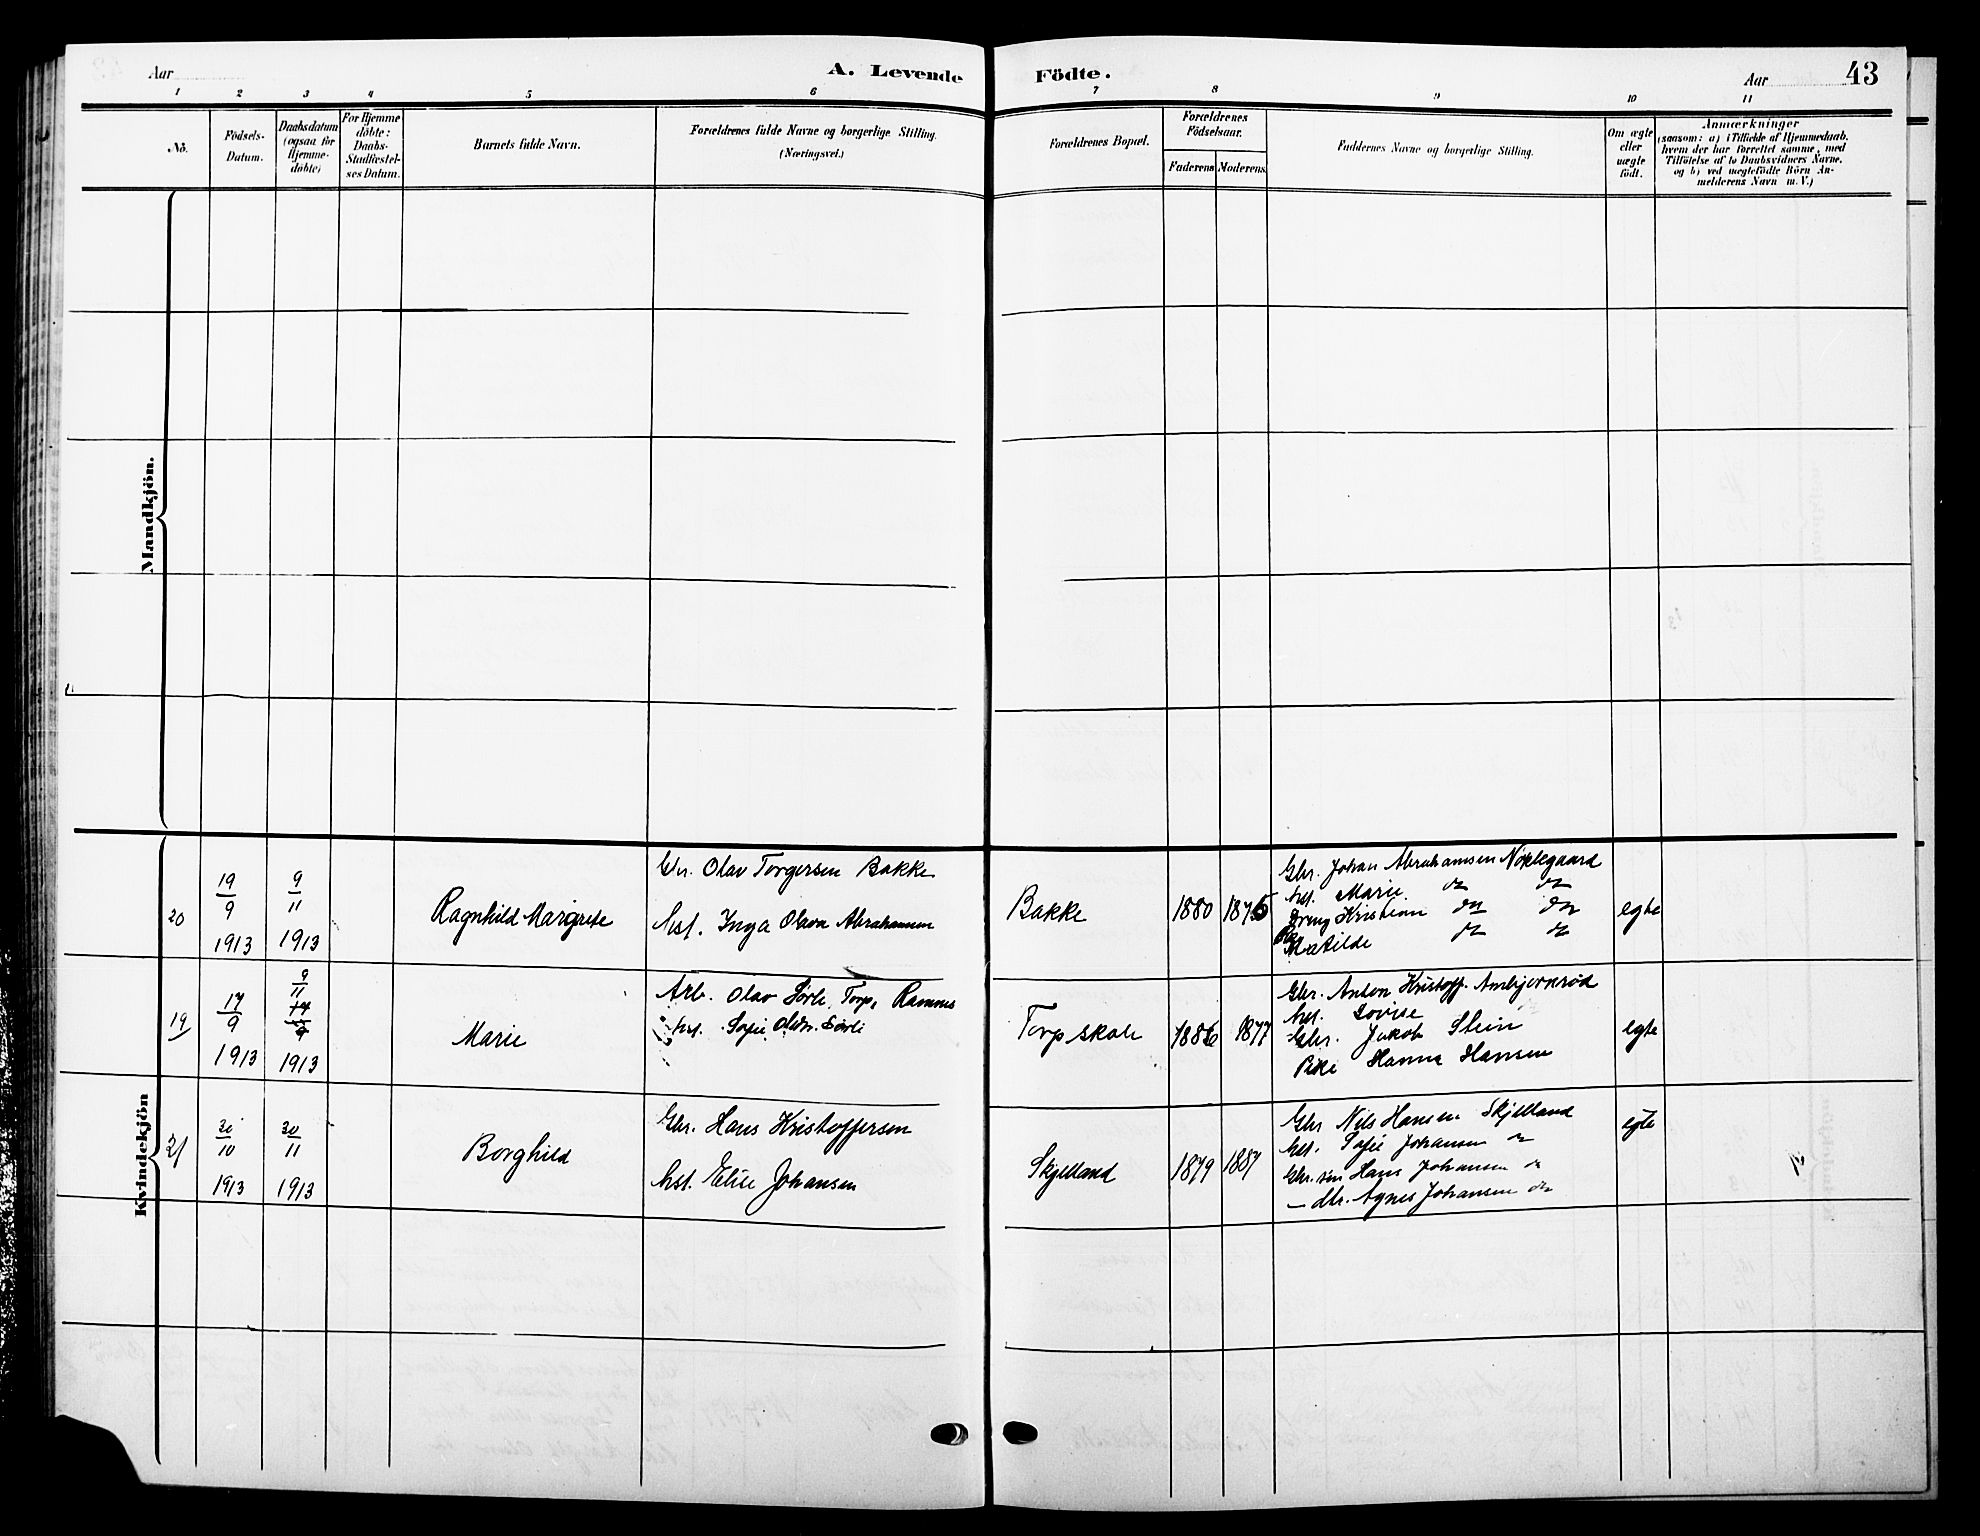 Aar
A. Levende Födte.
Aar
43
1 2 3 4 5 6 7 8 9 10 11
Nö.
Födsels-
Datum.
Daabsdatum
(ogsaa for
Hjemme-
döbte)
For Hjemme
döbte:
Daabs-
Stadfæstel-
ses Datum.
Barnets fulde Navn.
Forældrenes fulde Navne og borgerlige Stilling.
(Næringsvei.)
Forældrenes Bopæl.
Forældrenes
Födselsaar.
Faderens
Moderens
Faddernes Navne og borgerlige Stilling.
Om ægte
eller
uægte
födt.
Anmærkninger
(saasom: a) i Tilfælde af Hjemmedaab.
hvem der har forrettet samme, med
Tilföielse af to Daabsvidners Navne.
og b) ved uægtefödte Börn An-
melderens Navn m. V.)
Mandkjön.
Kvindekjön
20
19/9
1913
9/11
1913
Ragnhild Margrete
Olav Torgersen Bakke
hst. Inga Olava Abrahamsen
Bakke
1880
1876
Gbr. Johan Abrahamsen
hst. Marie do do
Dreng Kristian do do
Pike Matilde do do
egte
19
17/9
1913
9/11
1913
Marie
Arb. Olav Sørli, Torp, Ramnes
hst. Sofie Olsdr. Sørli
Torp skole
1886
1877
Gbr. Anton Kristoff. Ambjørnrød
hst. Lovise
Gbr. Jakob Stein
Pike Hanna Hansen
egte
21
20/10
1913
30/11
1913
Borghild
Gbr. Hans Kristoffersen
hst. Elise Johansen
Skjelland
1879
1887
Gbr Nils Hansen Skjelland
hst. Sofie Johansen do
Gbr. søn Hans Johansen do
— dtr. Agnes Johansen do
egte